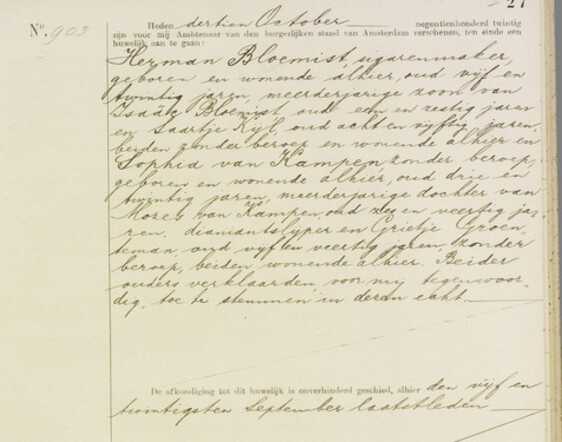 27
No. 903
Heden dertien October negentienhonderd twintig
zijn voor mij Ambtenaar van den burgerlijken stand van Amsterdam verschenen, ten einde een
huwelijk aan te gaan:
Herman Bloemist, sigarenmaker,
geboren en wonende alhier, oud vijf en
twintig jaren, meerderjarige zoon van
Isaäc Bloemist, oud een en zestig jaren
en Saartje Kijl, oud acht en vijftig jaren,
beiden zonder beroep en wonende alhier en
Sophia van Kampen zonder beroep,
geboren en wonende alhier, oud drie en
twintig jaren, meerderjarige dochter van
Mozes van Kampen, oud zes en veertig ja-
ren, diamantslyper en Grietje Groen-
teman, oud vijf en veertig jaren, zonder
beroep, beiden wonende alhier. Beider
ouders verklaarden voor mij tegenwoor-
dig, toe te stemmen in deren echt.
De afkondiging tot dit huwelijk is onverhinderd geschied, alhier den vijf en
twintigsten September laatstleden